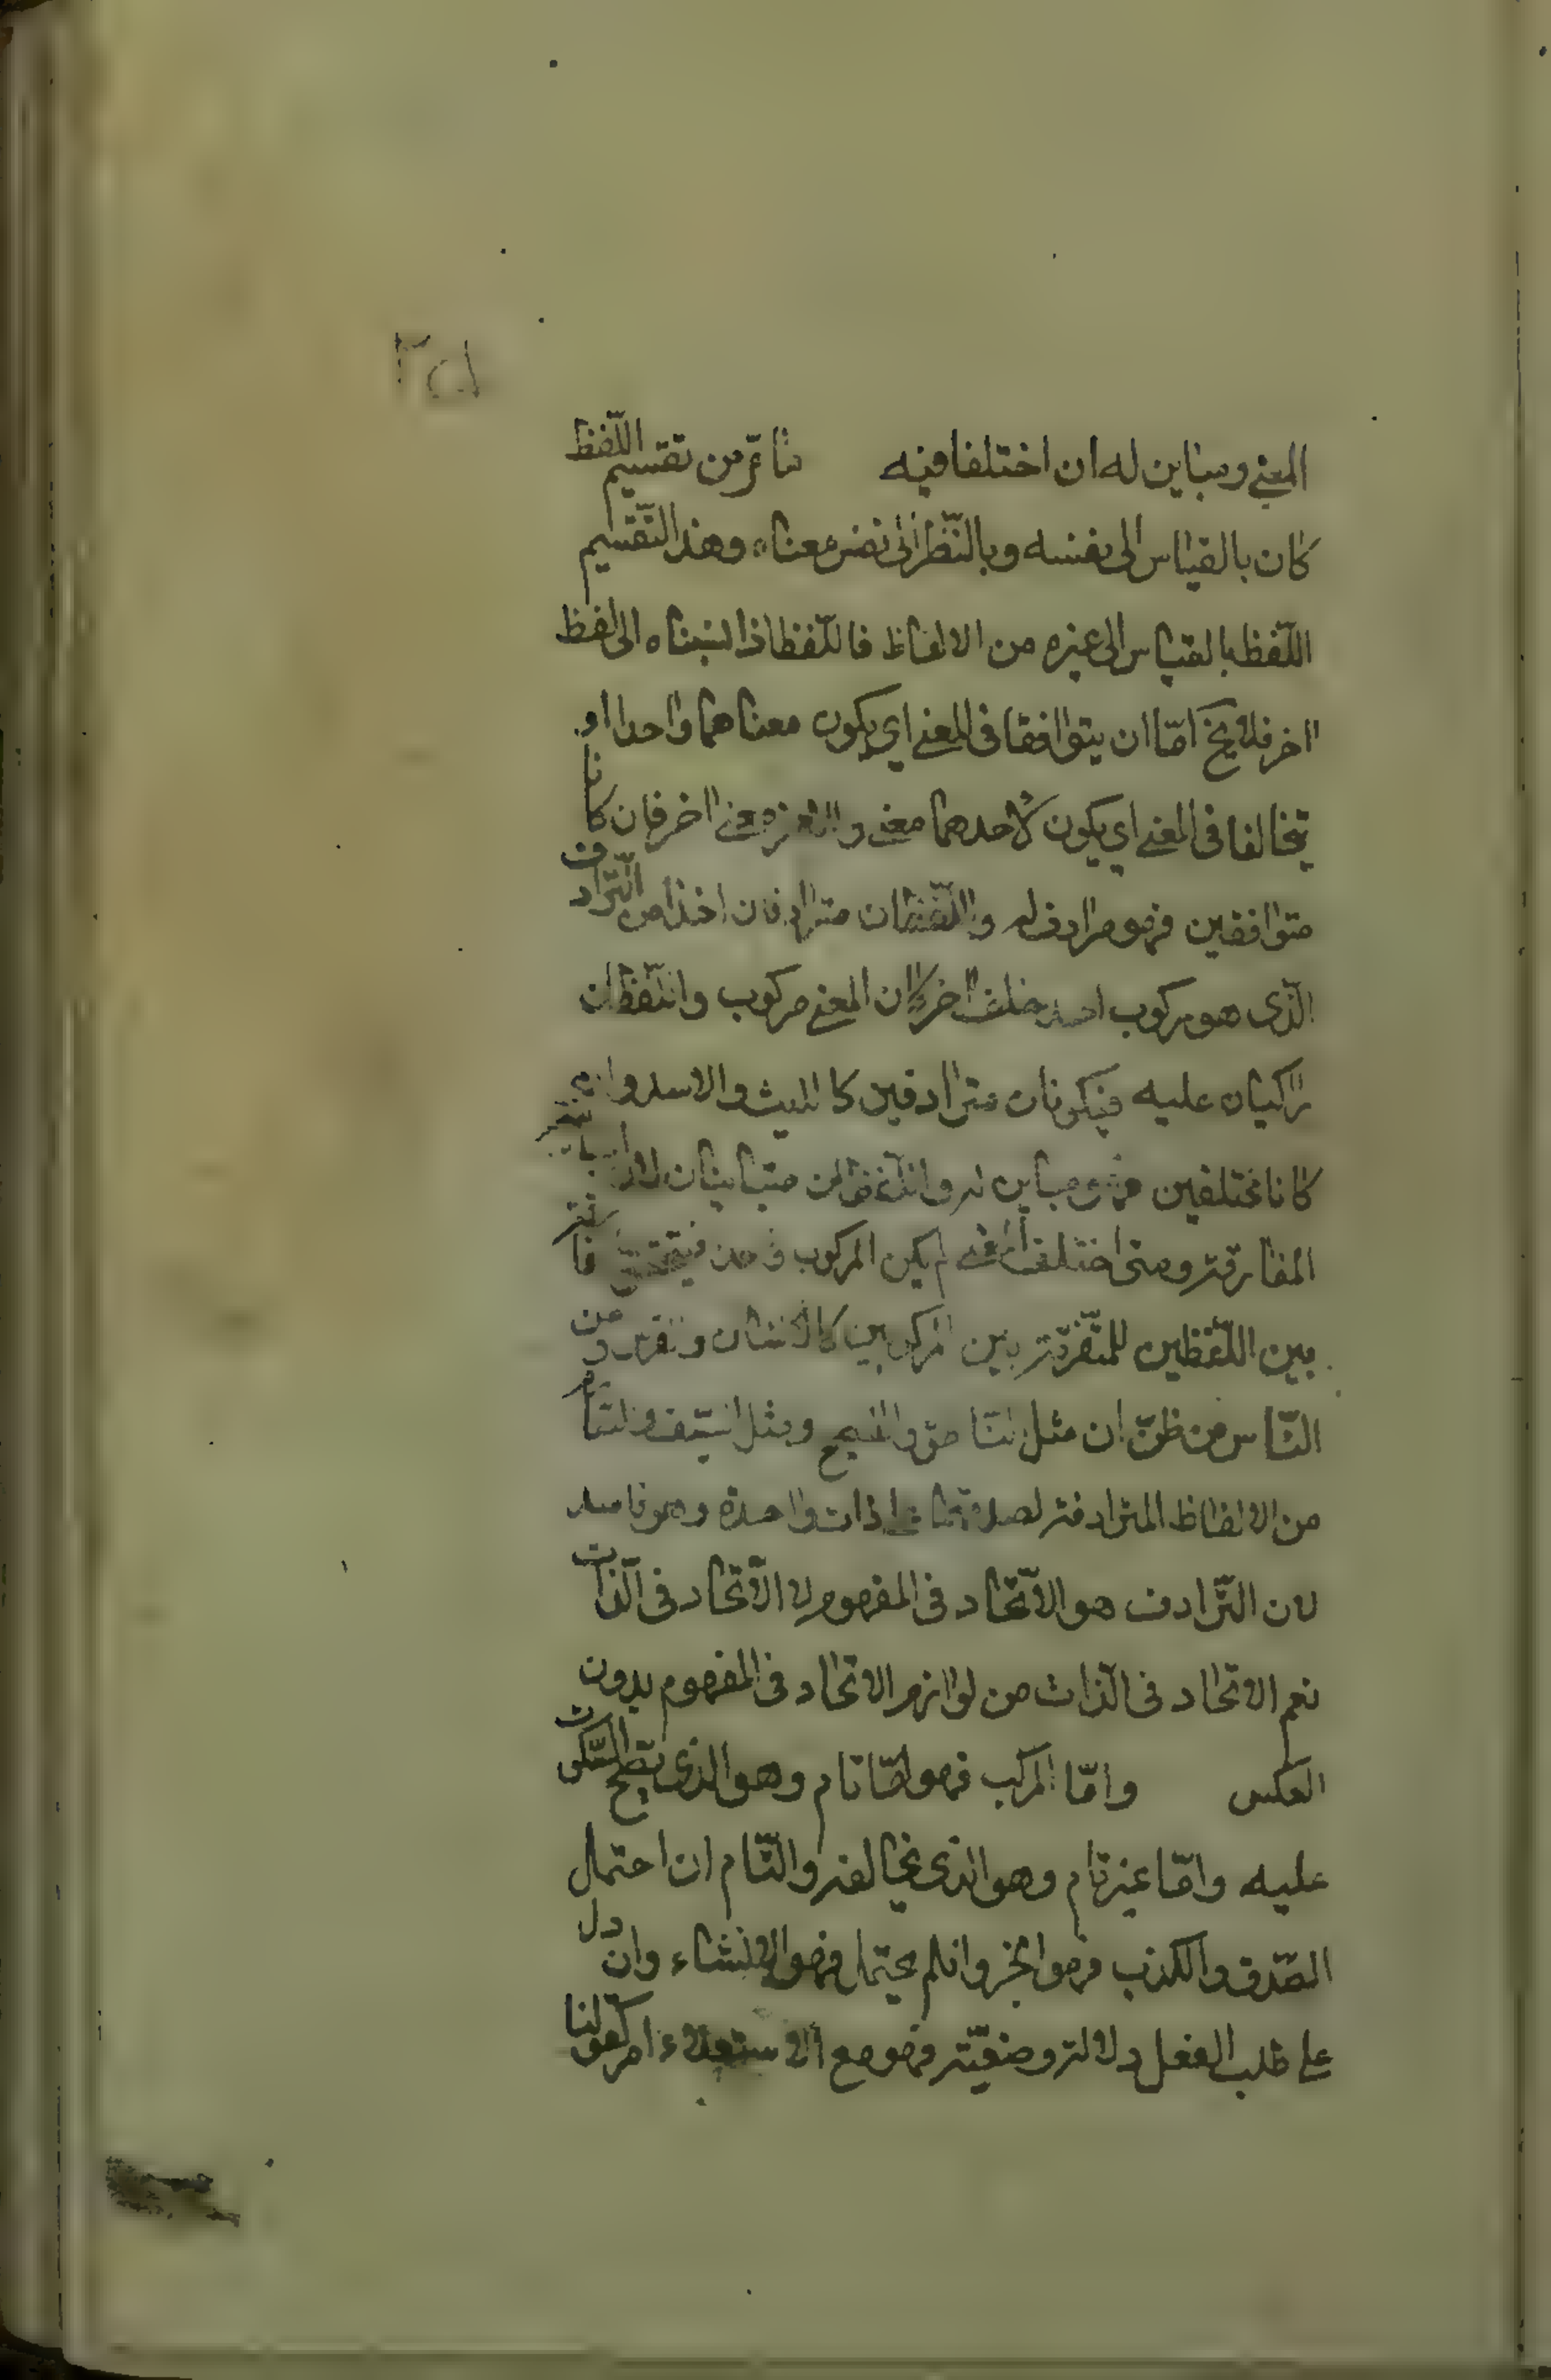 المعنى ومباين له ان اختلفا فيه ما مرّ من تقسيم اللّفظ
كان بالقياس الى نفسه وبالنّظر الى نفس معناه وهذا التّقسيم
اللّفظ بالقياس الى غيره من الالفاظ فاللّفظ اذا نسبناه الى لفظ
اخر فلا يخ امّا ان يتوافقا فى المعنى اي يكون معناهما واحدا او
يتخالفا فى المعنى اي يكون لاحدهما معنى وللاخر معنى اخر فان كانا
متوافقين فهو مرادف له واللّفظان مترادفان اخذا من التّرادف
الّذى هو ركوب احد خلف اخر كان المعنى مركوب واللّفظان
راكبان عليه فيكونان مترادفين كالليث والاسد وان
كانا مختلفين فهو مباين له واللّفظان متباينان لان المباينة
المفارقة ومتى اختلف المعنى لم يكن المركوب واحدا فيتحقق المفارقة
بين اللّفظين للتّفرقة بين المركوبين كالانسان والفرس ومن
النّاس من ظنّ ان مثل النّاطق والفصيح ومثل السّيف والصّارم
من الالفاظ المترادفة لصدقهما على ذات واحدة وهو فاسد
لان التّرادف هو الاتّحاد فى المفهوم لا الاتّحاد فى الذّات
نعم الاتحاد فى الذّات من لوازم الاتحاد فى المفهوم بدون
العكس وامّا المركب فهو امّا تام وهو الذى يصح السّكوت
عليه وامّا غير تام وهو الذى يخالفه والتّام ان احتمل
الصّدق والكذب فهو الخبر وان لم يحتمل فهو الانشاء وان دل
على طلب الفعل دلالة وضعيّة فهو مع الاستعلاء امر كقولنا